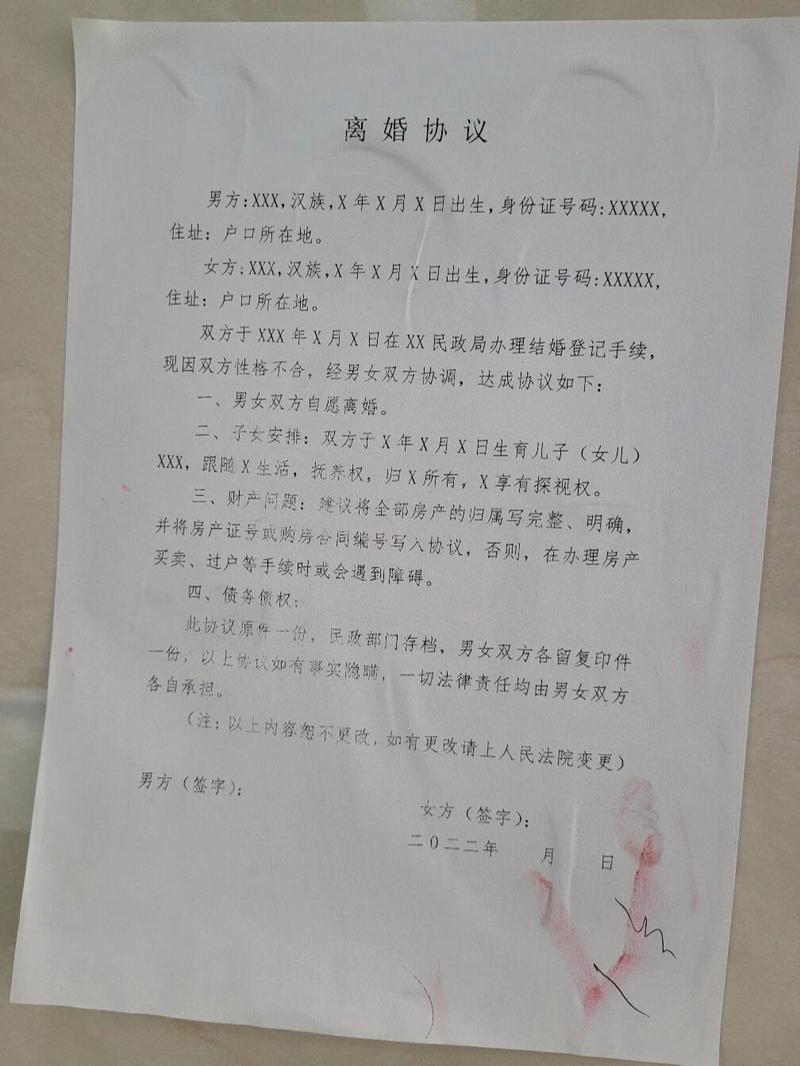 离婚协议
男方:XXX,汉族,X年X月X日出生,身份证号码:XXXXX,
住址：户口所在地。
女方:XXX,汉族,X年X月X日出生,身份证号码:XXXXX,
住址：户口所在地。
双方于XXX年X月X日在XX民政局办理结婚登记手续,
现因双方性格不合，经男女双方协调，达成协议如下：
一、男女双方自愿离婚。
二、子女安排：双方于X年X月X日生育儿子（女儿）
XXX，跟随X生活，抚养权，归X所有，X享有探视权。
三、财产问题：建议将全部房产的归属写完整、明确，
并将房产证号或购房合同编号写入协议，否则，在办理房产
买卖、过户等手续时或会遇到障碍。
四、债务债权：
此协议原件一份，民政部门存档，男女双方各留复印件
一份，以上协议如有事实隐瞒，一切法律责任均由男女双方
各自承担。
（注：以上内容恕不更改，如有更改请上人民法院变更）
男方（签字）：
女方（签字）：
二〇二二年 月 日